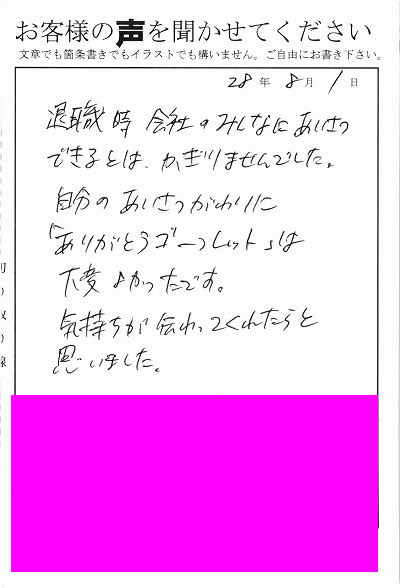 お客様の声を聞かせてください
文章でも箇条書きでもイラストでも構いません。ご自由にお書き下さい。
28年 8月 1日
退職時 会社のみんなにあいさつ
できるとは、かぎりませんでした。
自分のあいさつがわりに
「ありがとうゴーフレット」は
大変よかったです。
気持ちが伝わってくれたらと
思いました。
切り取り線